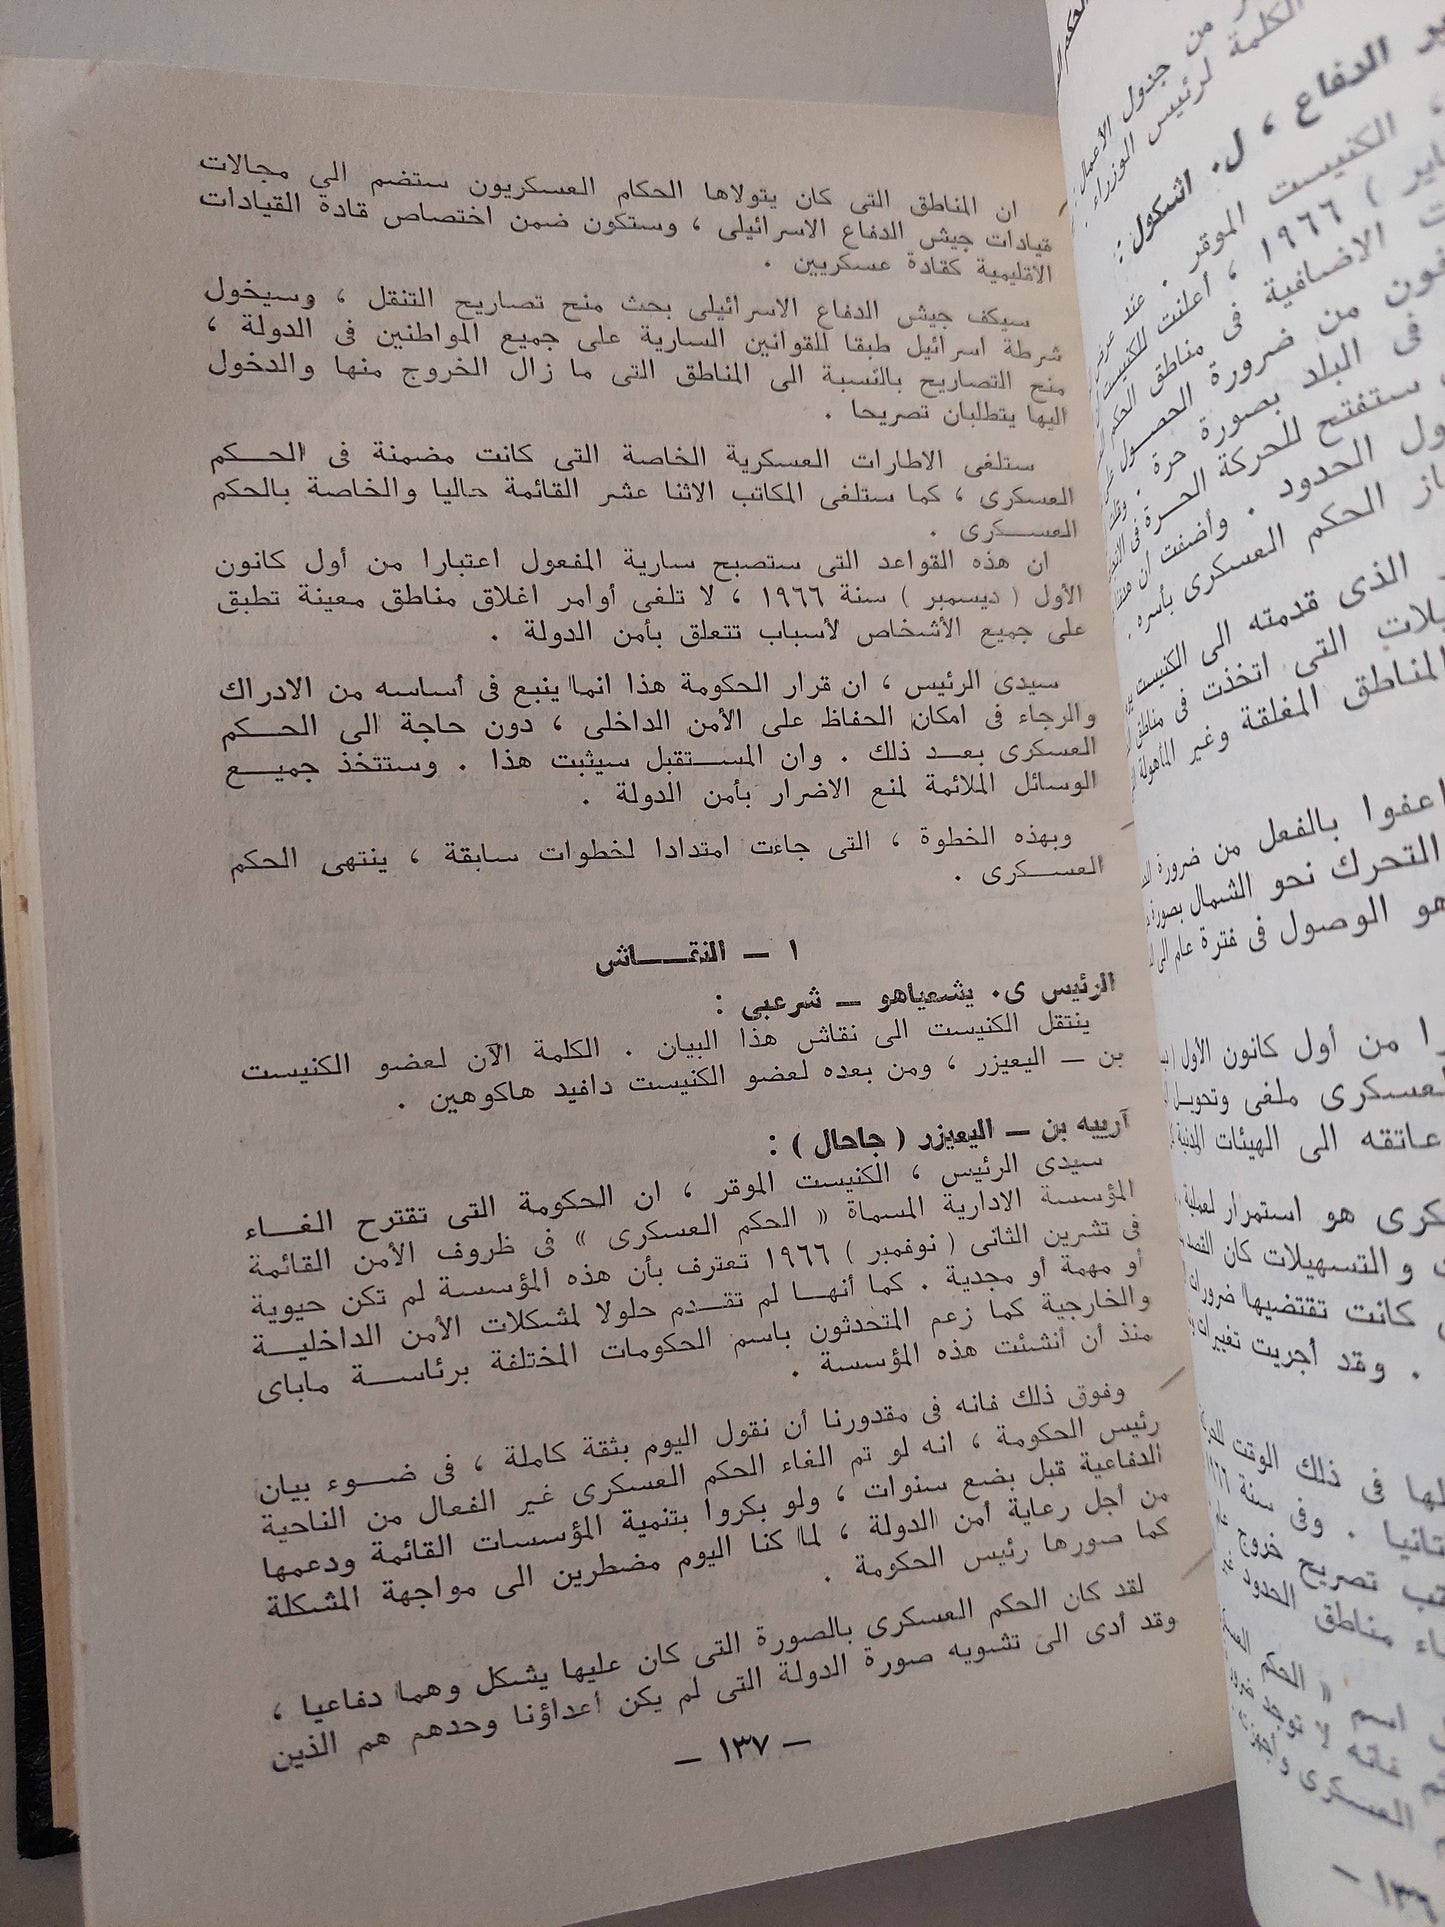 ان المناطق التى كان يتولاها الحكام العسكريون ستضم الي مجالات
قيادات جيش الدفاع الاسرائيلى ، وستكون ضمن اختصاص قادة القيادات
الأقليمية كقادة عسكريين .
سيكف جيش الدفاع الاسرائيلى بحث منح تصاريح التنقل ، وسيخول
شرطة اسرائيل طبقا للقوانين السارية على جميع المواطنين فى الدولة ،
منح التصاريح بالنسبة الى المناطق التى ما زال الخروج منها والدخول
اليها يتطلبان تصريحا .
ستلغى الاطارات العسكرية الخاصة التى كانت مضمنة فى الحكم
العسكرى ، كما ستلغى المكاتب الاثنا عشر القائمة حاليا والخاصة بالحكم
العسكرى .
ان هذه القواعد التى ستصبح سارية المفعول اعتبارا من أول كانون
الأول ( ديسمبر ) سنة ١٩٦٦ ، لا تلغى أوامر اغلاق مناطق معينة تطبق
على جميع الأشخاص لأسباب تتعلق بأمن الدولة .
سيدى الرئيس ، ان قرار الحكومة هذا انما ينبع فى أساسه من الادراك
والرجاء فى امكان الحفاظ على الأمن الداخلى ، دون حاجة الى الحكم
العسكرى بعد ذلك . وان المستقبل سيثبت هذا . وستتخذ جميع
الوسائل الملائمة لمنع الاضرار بأمن الدولة .
وبهذه الخطوة ، التى جاءت امتدادا لخطوات سابقة ، ينتهى الحكم
العسكرى .
١ — النقاش
الرئيس ى. يشعياهو — شرعبى :
ينتقل الكنيست الى نقاش هذا البيان . الكلمة الآن لعضو الكنيست
بن — اليعيزر ، ومن بعده لعضو الكنيست دافيد هاكوهين .
آرييه بن — اليعيزر ( جاحال ) :
سيدى الرئيس ، الكنيست الموقر ، ان الحكومة التى تقترح الغاء
المؤسسة الادارية المسماة « الحكم العسكرى » فى ظروف الأمن القائمة
فى تشرين الثانى ( نوفمبر ) ١٩٦٦ تعترف بأن هذه المؤسسة لم تكن حيوية
أو مهمة أو مجدية . كما أنها لم تقدم حلولا لمشكلات الأمن الداخلية
والخارجية كما زعم المتحدثون باسم الحكومات المختلفة برئاسة ماباى
منذ أن أنشئت هذه المؤسسة .
وفوق ذلك فانه فى مقدورنا أن نقول اليوم بثقة كاملة ، فى ضوء بيان
رئيس الحكومة ، انه لو تم الغاء الحكم العسكرى غير الفعال من الناحية
الدفاعية قبل بضع سنوات ، ولو بكروا بتنمية المؤسسات القائمة ودعمها
من أجل رعاية أمن الدولة ، لما كنا اليوم مضطرين الى مواجهة المشكلة
كما صورها رئيس الحكومة .
لقد كان الحكم العسكرى بالصورة التى كان عليها يشكل وهما دفاعيا ،
وقد أدى الى تشويه صورة الدولة التى لم يكن أعداؤنا وحدهم هم الذين
— ١٣٧ —
من جدول الأعمال
الكلمة لرئيس الوزراء
الدفاع ، ل. اشكول :
، الكنيست الموقر . عند
) ١٩٦٦ ، أعلنت للكنيست
الاضافية فى مناطق الحكم
من ضرورة الحصول
فى البلد بصورة حرة .
ستفتح للحركة الحرة فى
الحدود . وأضفت أن
الحكم العسكرى بأسره .
الذى قدمته الى الكنيست
التى اتخذت فى مناطق
المناطق المغلقة وغير المأهولة
اعفوا بالفعل من ضرورة
التحرك نحو الشمال بصورة
هو الوصول فى فترة عام الى
من أول كانون الأول
ملغى وتحويل
عاتقه الى الهيئات المدنية
هو استمرار لعملية
والتسهيلات كان القصد
كانت تقتضيها ضرورات
. وقد أجريت تغييرات
فى ذلك الوقت
. وفى سنة
تصريح خروج
مناطق الحدود
اسم « الحكم
فانه لا توجد
العسكرى
١٣٦ —